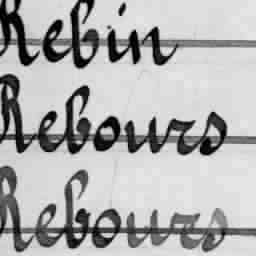 Rebin
Rebours
Rebours